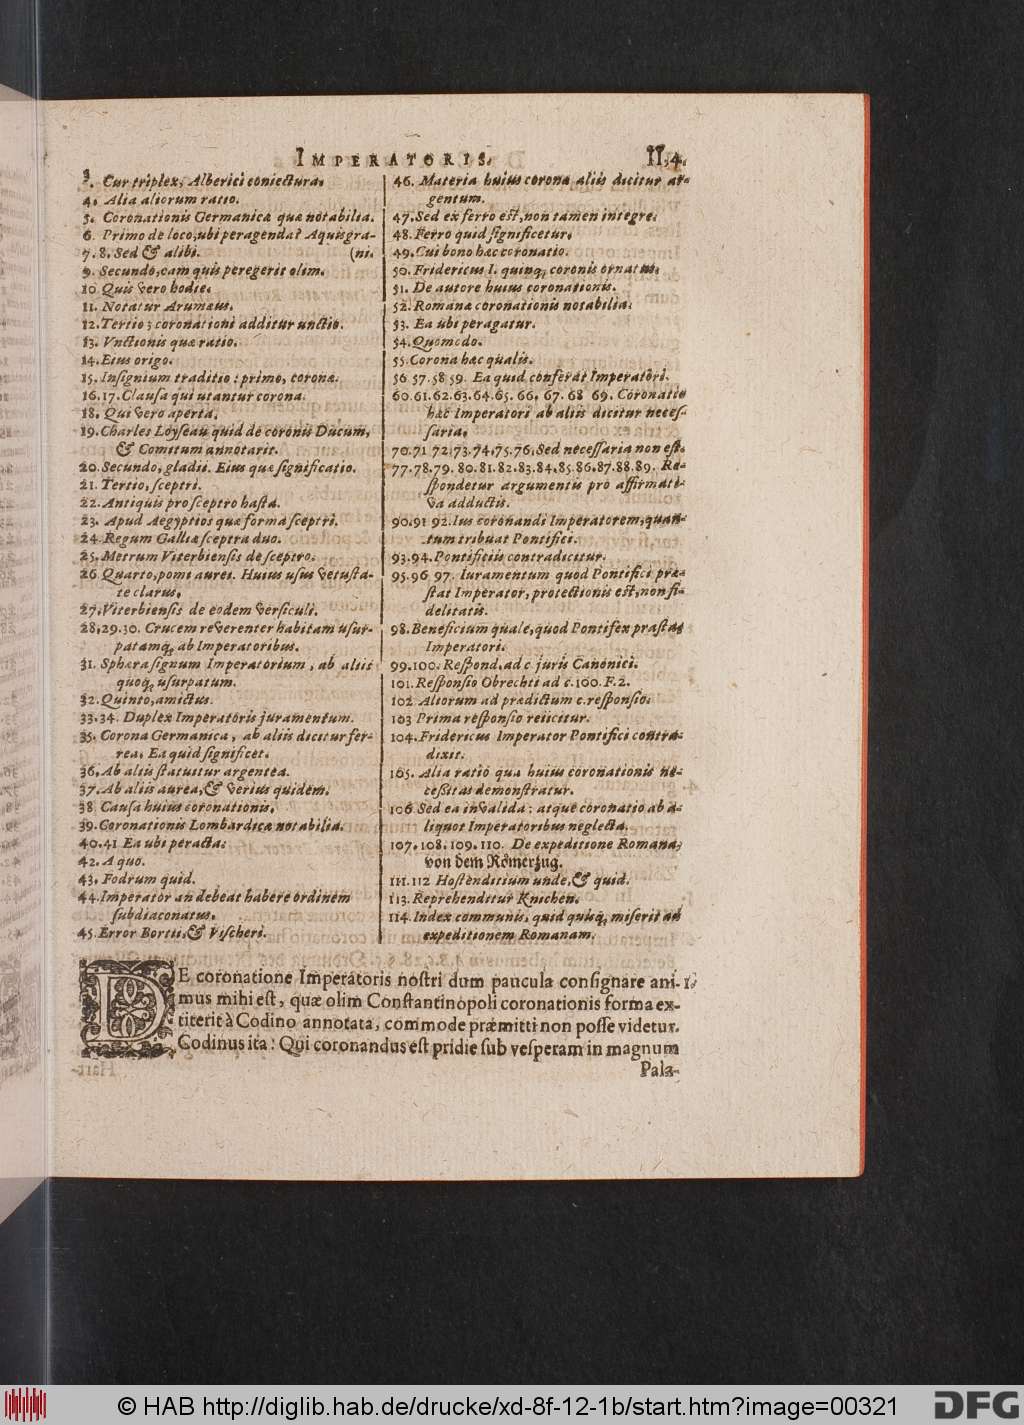 IMPERATORIS.
II, 4.
3. Cur triplex, Alberici coniectura.
4. Alia aliorum ratio.
5. Coronationis Germanicæ quæ notabilia.
6. Primo de loco, ubi peragenda? Aquisgra-
7. 8. Sed & alibi. (ni.
9. Secundo, eam quis peregerit olim.
10 Quis vero hodie.
11. Notatur Arumæus.
12. Tertio; coronationi additur unctio.
13. Vnctionis quæ ratio.
14. Eius origo.
15. Insignium traditio: primo, coronæ.
16. 17. Clausa qui utantur corona.
18. Qui vero aperta.
19. Charles Loyseau quid de coronis Ducum,
& Comitum annotarit.
20. Secundo, gladii. Eius quæ significatio.
21. Tertio, sceptri.
22. Antiquis pro sceptro hasta.
23. Apud Aegyptios quæ forma sceptri.
24. Regum Galliæ sceptra duo.
25. Metrum Viterbiensis de sceptro.
26 Quarto, pomi aurei. Huius usus vetusta-
te clarus.
27. Viterbiensis de eodem versiculi.
28, 29. 30. Crucem reverenter habitam usur-
patamq; ab Imperatoribus.
31. Sphæra signum Imperatorium, ab aliis
quoq; usurpatum.
32. Quinto, amictus.
33. 34. Duplex Imperatoris juramentum.
35. Corona Germanica, ab aliis dicitur fer-
rea. Ea quid significet.
36. Ab aliis statuitur argentea.
37. Ab aliis aurea, & verius quidem.
38 Causa huius coronationis.
39. Coronationis Lombardicæ notabilia.
40. 41 Ea ubi peracta:
42. A quo.
43. Fodrum quid.
44. Imperator an debeat habere ordinem
subdiaconatus.
45. Error Bortii, & Vischeri.
46. Materia huius coronæ aliis dicitur ar-
gentum.
47. Sed ex ferro est, non tamen integre.
48. Ferro quid significetur.
49. Cui bono hæc coronatio.
50. Fridericus I. quinq; coronis ornatus.
51. De autore huius coronationis.
52. Romanæ coronationis notabilia.
53. Ea ubi peragatur.
54. Quomodo.
55. Corona hæc qualis.
56 57. 58 59. Ea quid conferat Imperatori.
60. 61. 62. 63. 64. 65. 66. 67. 68 69. Coronatio
hæc Imperatori ab aliis dicitur neces-
saria.
70. 71 72. 73. 74. 75. 76. Sed necessaria non est.
77. 78. 79. 80. 81. 82. 83. 84. 85. 86. 87. 88. 89. Re-
spondetur argumentis pro affirmati-
va adductis.
90. 91 92. Ius coronandi Imperatorem, quan-
tum tribuat Pontifici.
93. 94. Pontificiis contradicitur.
95. 96 97. Iuramentum quod Pontifici præ-
stat Imperator, protectionis est, non fi-
delitatis.
98. Beneficium quale, quod Pontifex præstat
Imperatori.
99. 100. Respond. ad c juris Canonici.
101. Responsio Obrechti ad c. 160. F. 2.
102 Aliorum ad prædictum c. responsio.
103 Prima responsio reiicitur.
104. Fridericus Imperator Pontifici contra-
dixit.
105. Alia ratio qua huius coronationis ne-
cessitas demonstratur.
106 Sed ea invalida: atque coronatio ab a-
liquot Imperatoribus neglecta.
107. 108. 109. 110. De expeditione Romana,
von dem Römerzug.
111. 112 Hostenditium unde, & quid.
113. Reprehenditur Knichen.
114. Index communis, quid quisq; miserit ad
expeditionem Romanam.
DE coronatione Imperatoris nostri dum paucula consignare ani- 1.
mus mihi est, quæ olim Constantinopoli coronationis forma ex-
titerit à Codino annotata, commode præmitti non posse videtur.
Codinus ita: Qui coronandus est pridie sub vesperam in magnum
Pala-
© HAB http://diglib.hab.de/drucke/xd-8f-12-1b/start.htm?image=00321
DFG